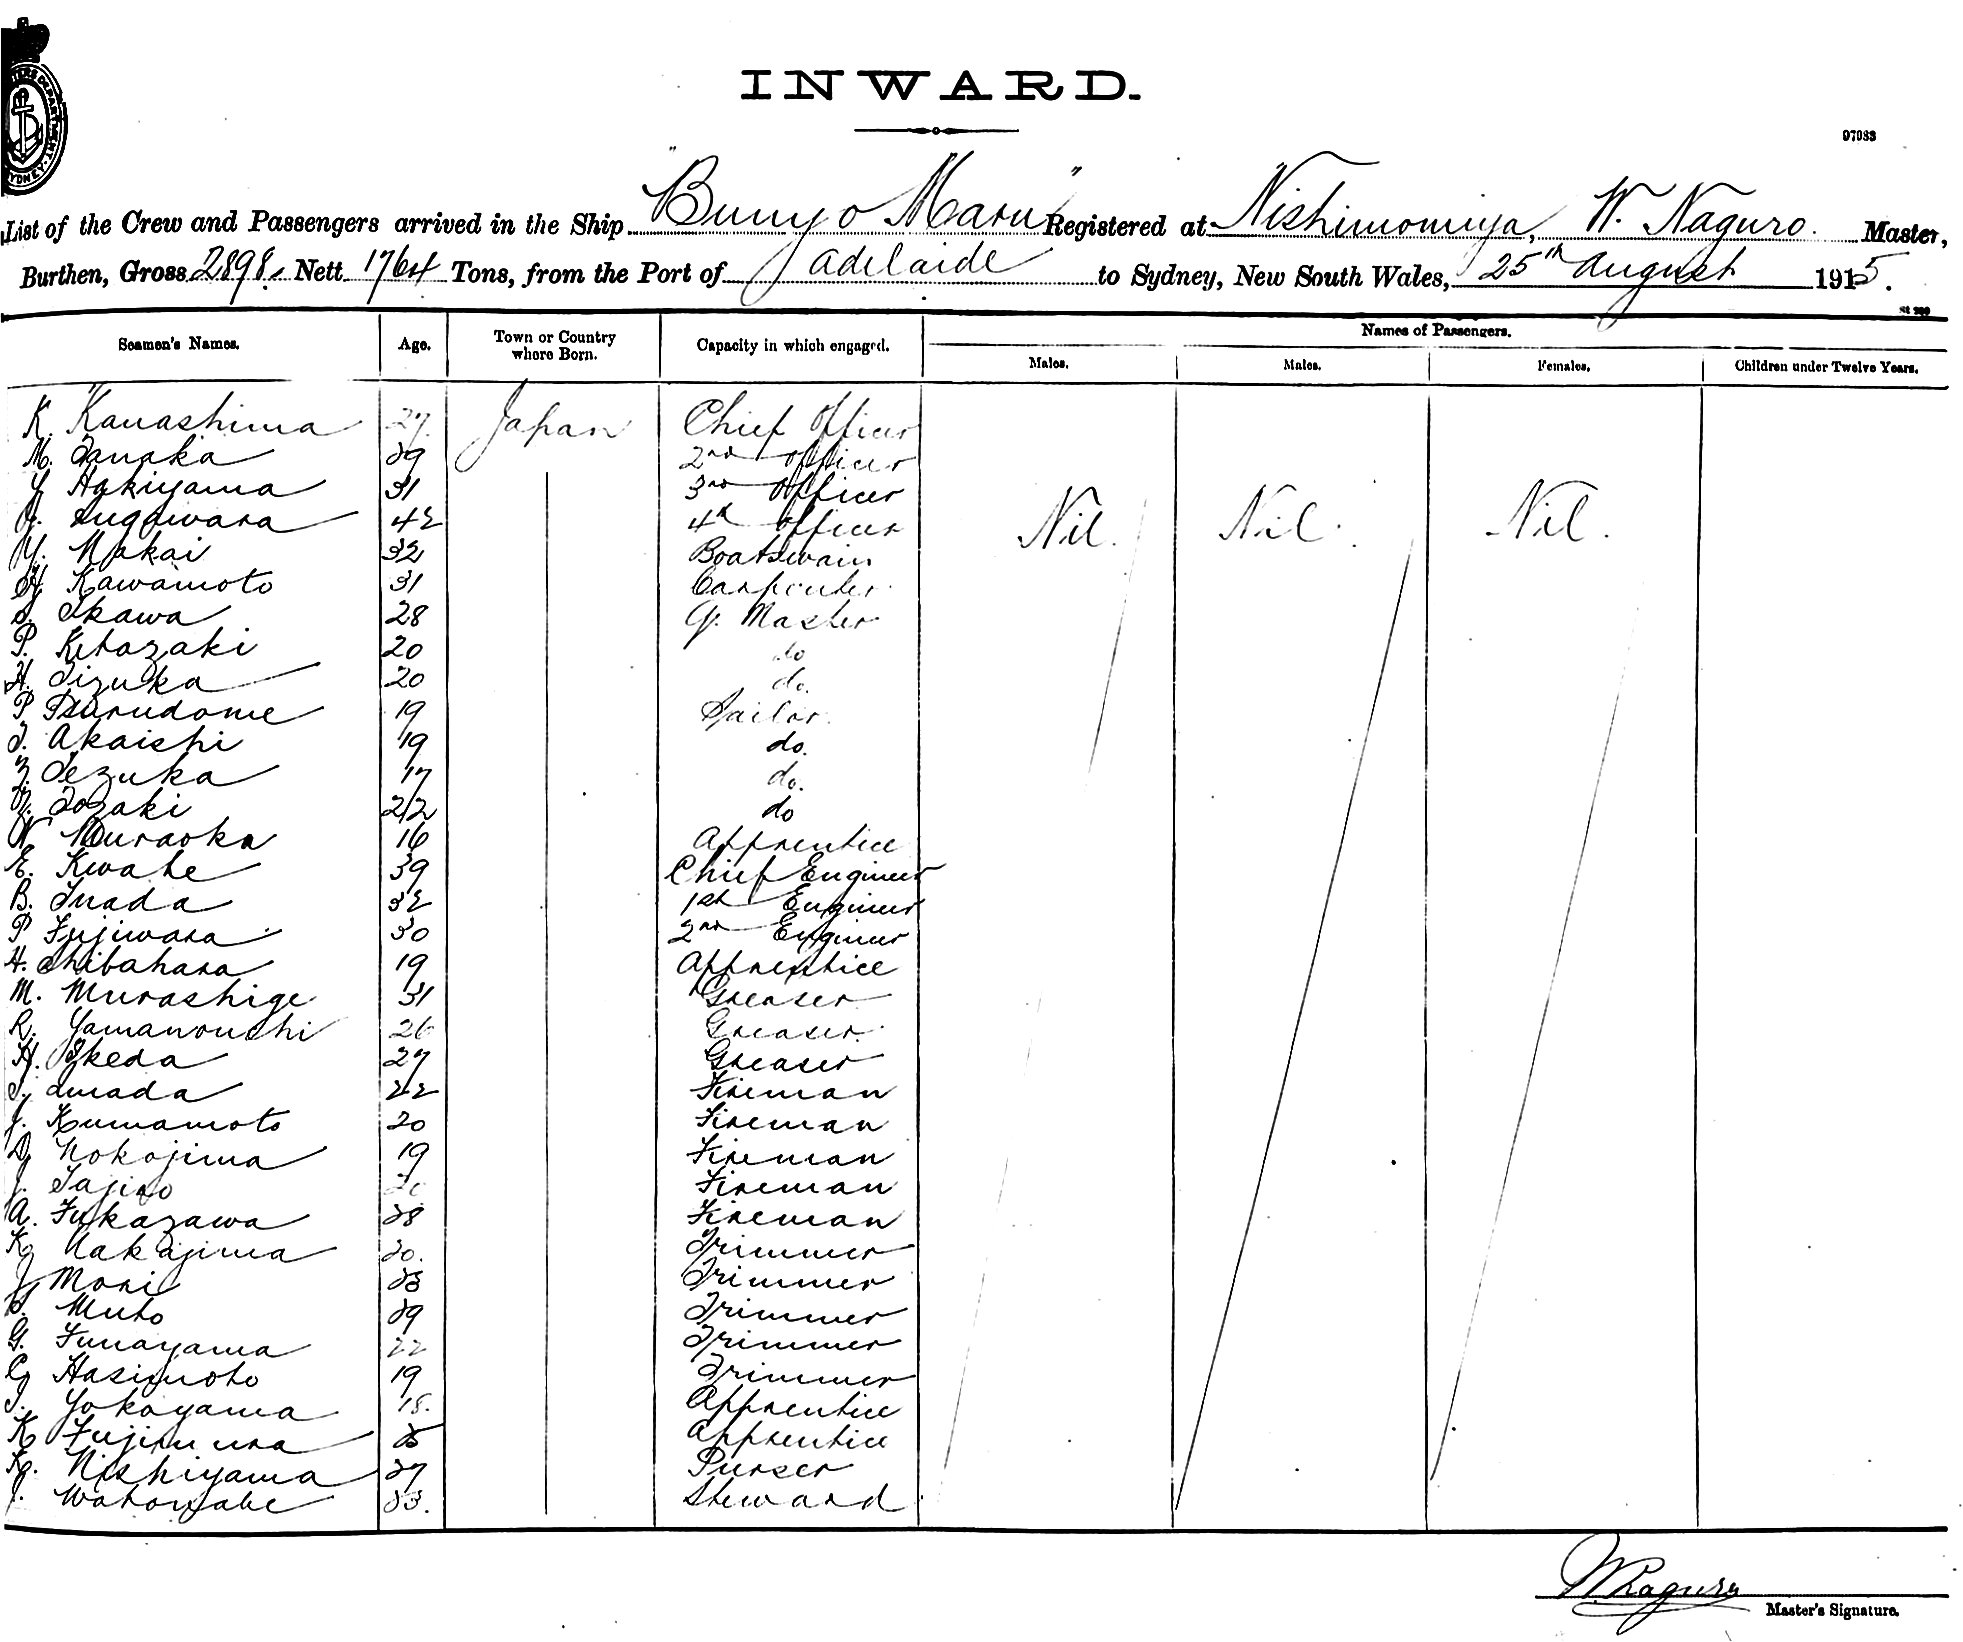 INWARD.
07033
List of the Crew and Passengers arrived in the Ship "Bunyo Maru" Registered at Nishinomiya, W. Naguro. Master,
Burthen, Gross 2898. Nett 1764 Tons, from the Port of Adelaide to Sydney, New South Wales, 25th August 1915.
Seamen's Names. Age. Town or Country where Born. Capacity in which engaged. Names of Passengers.
Males. Males. Females. Children under Twelve Years.
K. Kawashima 27. Japan Chief Officer
M. Tanaka 29 2nd Officer
Y Hakiyama 31 3rd Officer
Sugawara 42 4th Officer
Nil. Nil. Nil.
Y. Nakai 32 Boatswain
Kawamoto 31 Carpenter
S. Ikawa 28 Q. Master
P. Kitazaki 20 do
H. Iizuka 20 do.
P Tsurudome 19 Sailor.
T. Akaishi 19 do.
Tezuka 17 do.
Tozaki 22 do
N Muraoka 16 Apprentice
E. Kwabe 39 Chief Engineer
B. Inada 32 1st Engineer
P Fujiwara 30 2nd Engineer
H. Shibahara 19 Apprentice
M. Murashige 31 Greaser
R. Yamanouchi 26 Greaser.
H. Ikeda 27 Greaser
22 Fireman
J. Kumamoto 20 Fireman
Nokojima 19 Fireman
J. Tajiro Fireman
A. Fukazawa 28 Fireman
K Nakajima 20. Trimmer
Y Mori 23 Trimmer
Muto 29 Trimmer
G. Funayama 22 Trimmer
Hasimoto 19 Trimmer
Yokoyama 18. Apprentice
K Fujimura Apprentice
K. Nishiyama 27 Purser
Watanabe 23. Steward
Master's Signature.